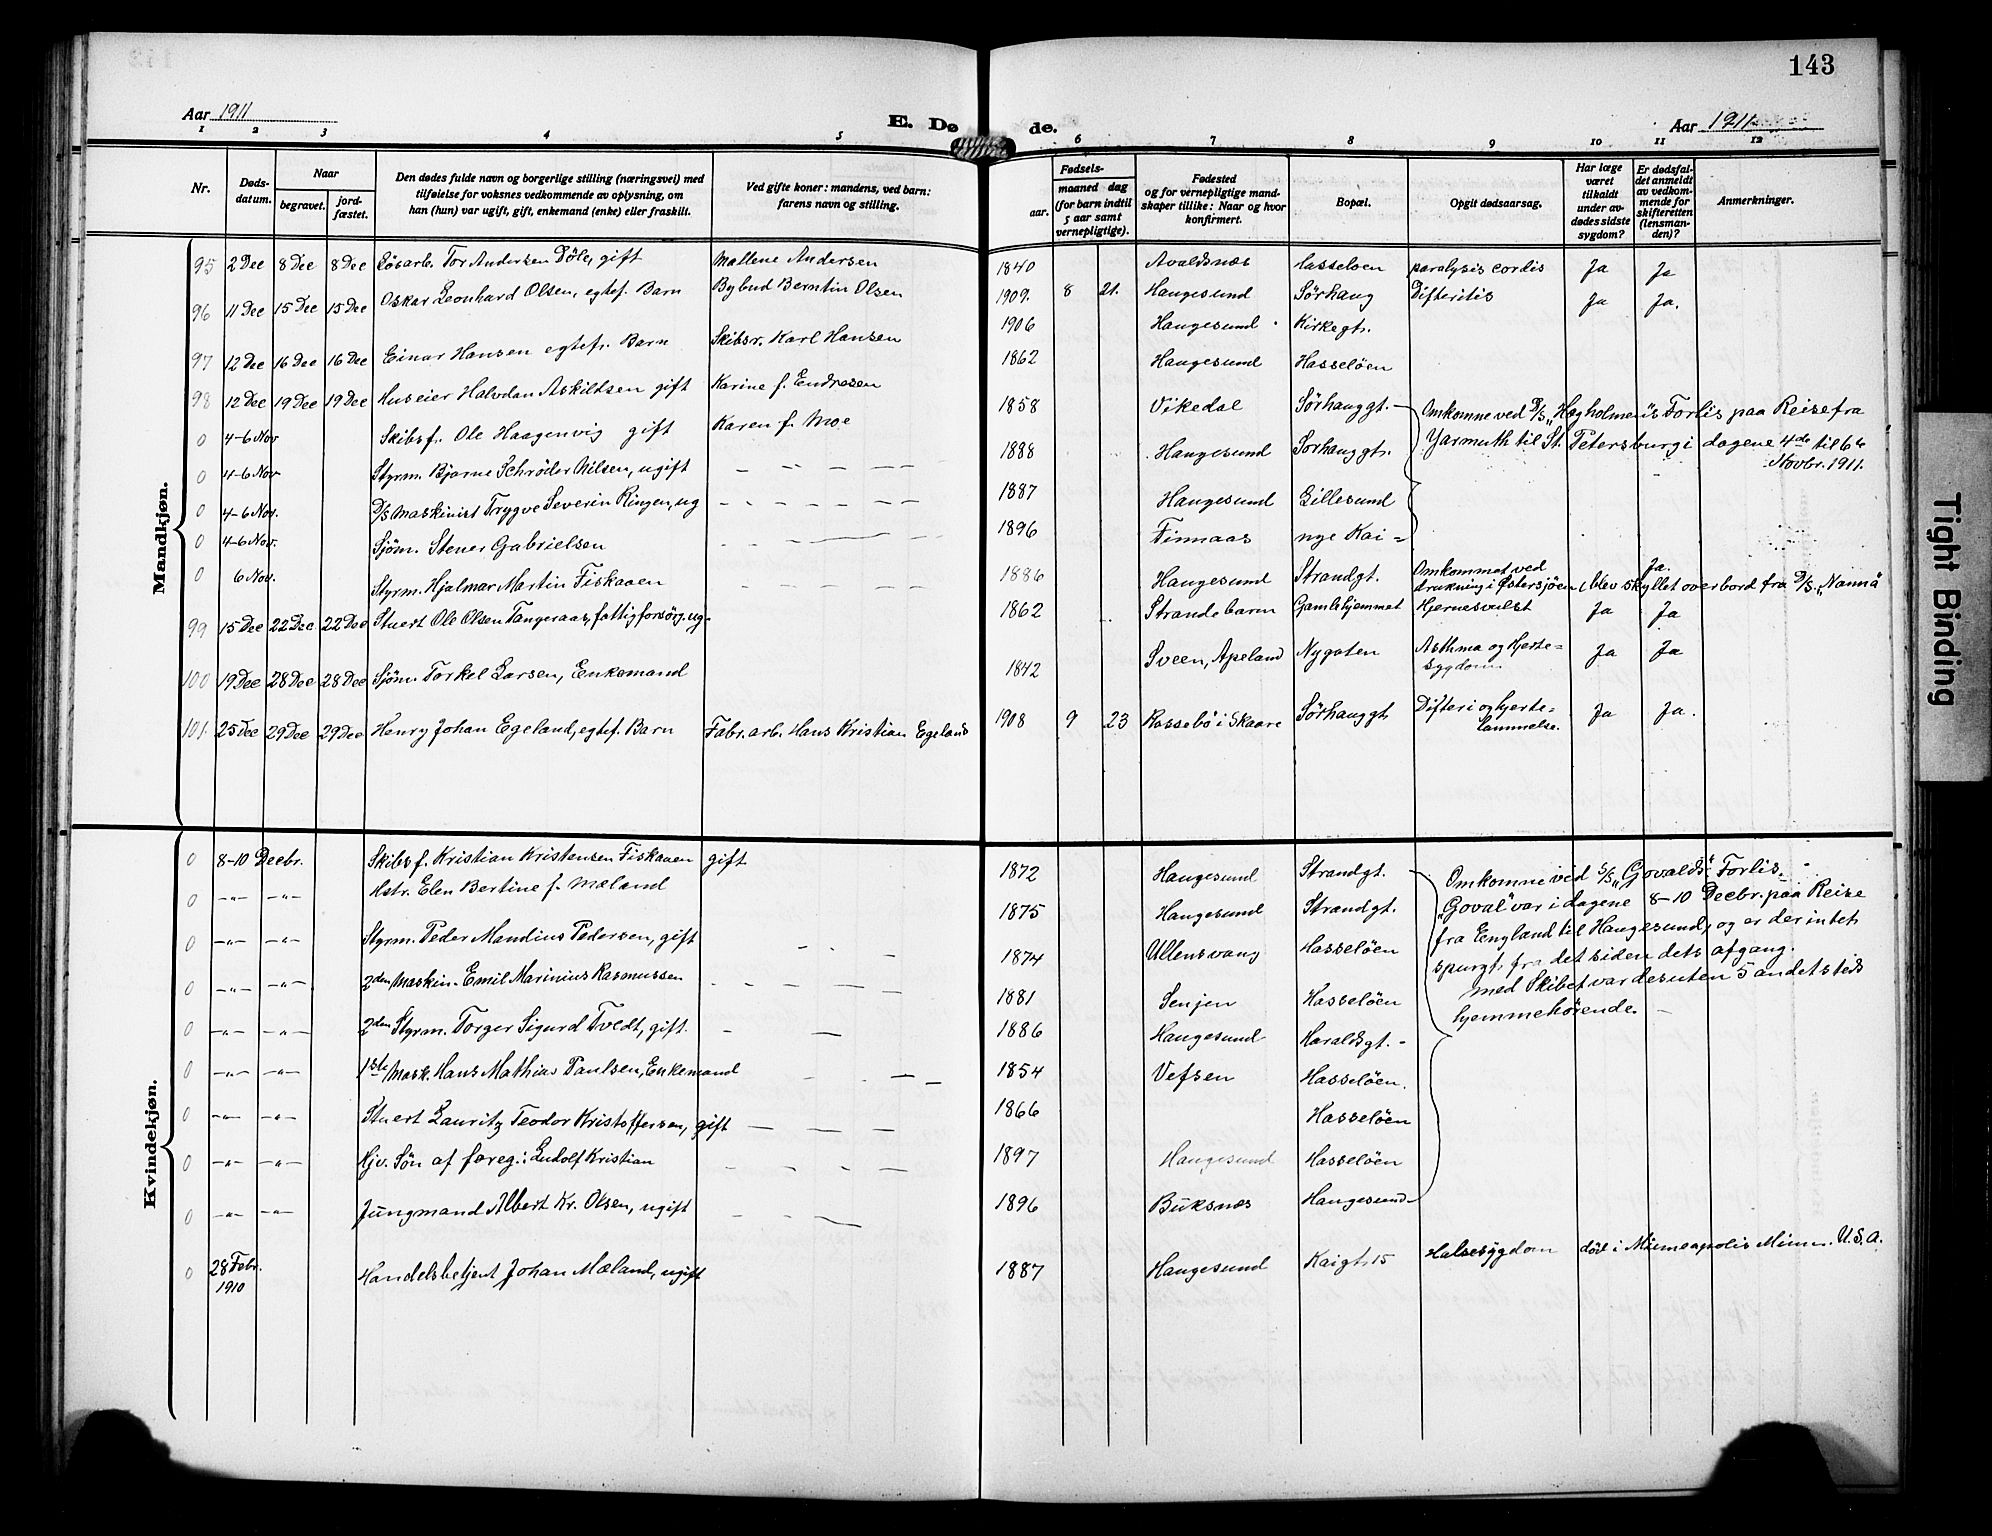 143
Aar 1911
E. Dø de.
Aar 1911
1 2 3 4 5 6 7 8 9 10 11 12
Nr.
Døds-
datum.
Naar
begravet.
jord-
fæstet.
Den dødes fulde navn og borgerlige stilling (næringsvei) med
tilføielse for voksnes vedkommende av oplysning, om
han (hun) var ugift, gift, enkemand (enke) eller fraskilt.
Ved gifte koner: mandens, ved barn:
farens navn og stilling.
Fødsels-
aar.
maaned dag
(for barn indtil
5 aar samt
vernepligtige).
Fødested
og for vernepligtige mand-
skaper tillike: Naar og hvor
konfirmert.
Bopæl.
Opgit dødsaarsag.
Har læge
været
tilkaldt
under av-
dødes sidste
sygdom?
Er dødsfal-
det anmeldt
av vedkom-
mende for
skifteretten
(lensman-
den)?
Anmerkninger.
Mandkjøn.
95 2 Dec 8 Dec 8 Dec Løsarb. Tor Andersen Døle, gift Mallene Andersen 1840 Avaldsnæs Hasseløen paralysis cordis Ja Ja
96 11 Dec 15 Dec 15 Dec Oskar Leonhard Olsen, egtef. Barn Bybud Berntin Olsen 1909. 8 21. Haugesund Sørhaug Difteritis Ja Ja.
97 12 Dec 16 Dec 16 Dec Einar Hansen egtef. Barn Skibsr. Karl Hansen 1906 Haugesund Kirkegt.
98 12 Dec 19 Dec 19 Dec Huseier Halvdan Askildsen gift Karine f. Endresen 1862 Haugesund Hasseløen
0 4-6 Nov Skibsf. Ole Haagenvig gift Karen f. Moe 1858 Vikedal Sørhauggt. Omkomne ved D/S „Hegholmen"s Forlis paa Reise fra
Yarmuth til St. Petersburg i dagene 4de til 6te
Novbr. 1911.
0 4-6 Nov Styrm. Bjarne Schrøder Nilsen, ugift 1888 Haugesund Sørhauggt.
0 4-6 Nov. D/S Maskinist Trygve Severin Ringen, ug 1887 Haugesund Lillesund
0 4-6 Nov. Sjøm. Stener Gabrielsen 1896 Finnaas nye Kai
0 6 Nov. Styrm. Hjalmar Martin Fiskaaen 1886 Haugesund Strandgt. Omkommet ved Ja.
drukning i Østersjøen (blev skyllet overbord fra D/S „Nanna
99 15 Dec 22 Dec 22 Dec Stuert Ole Olsen Tangeraas, fattigforsørg. ug. 1862 Strandebarm Gamlehjemmet Hjernesvulst Ja Ja
100 19 Dec 28 Dec 28 Dec Sjøm. Torkel Larsen, Enkemand 1842 Sveen, Apeland Nygaten Asthma og Hjerte-
sygdom Ja Ja
101. 25 Dec 29 Dec 29 Dec Henry Johan Egeland, egtef. Barn Fabr. arb. Hans Kristian Egeland 1908 9 23 Rossebø i Skaare Sørhauggt Difteri og hjerte-
lammelse. Ja Ja.
Kvindekjøn.
0 8-10 Decbr. Skibsf. Kristian Kristensen Fiskaaen gift 1872 Haugesund Strandgt. Omkomne ved S/S „Govalds" Forlis.
„Goval" var i dagene 8-10 Decbr. paa Reise
fra England til Haugesund, og er der intet
spurgt fra det siden dets afgang.
Med Skibet var desuten 5 andetsteds
hjemmehørende.
0 -"- -"- Hstr. Elen Bertine f. Mæland 1875 Haugesund Strandgt.
0 -"- -"- Styrm. Peder Mandius Pedersen, gift 1874 Ullensvang Hasseløen
0 -"- -"- 2den Maskin. Emil Marinius Rasmussen 1881 Senjen Hasseløen
0 -"- -"- 2den Styrm. Torger Sigurd Tvedt, gift. 1886 Haugesund Haraldsgt.
0 -"- -"- 1ste Mask. Hans Mathias Paulsen, Enkemand 1854 Vefsen Hasseløen.
0 -"- -"- Stuert Lauritz Teodor Kristoffersen, gift 1866 Hasseløen
0 -"- -"- Hjv. Søn af foreg.: Ludolf Kristian 1897 Haugesund Hasseløen
0 -"- -"- Jungmand Albert Kr. Olsen, ugift 1896 Buksnæs Haugesund
0 28 Febr. 1910 Handelsbetjent Johan Mæland, ugift 1887 Haugesund Kaigt. 15 Halssygdom død i Minneapolis Minn. U.S.A.
Tight Binding